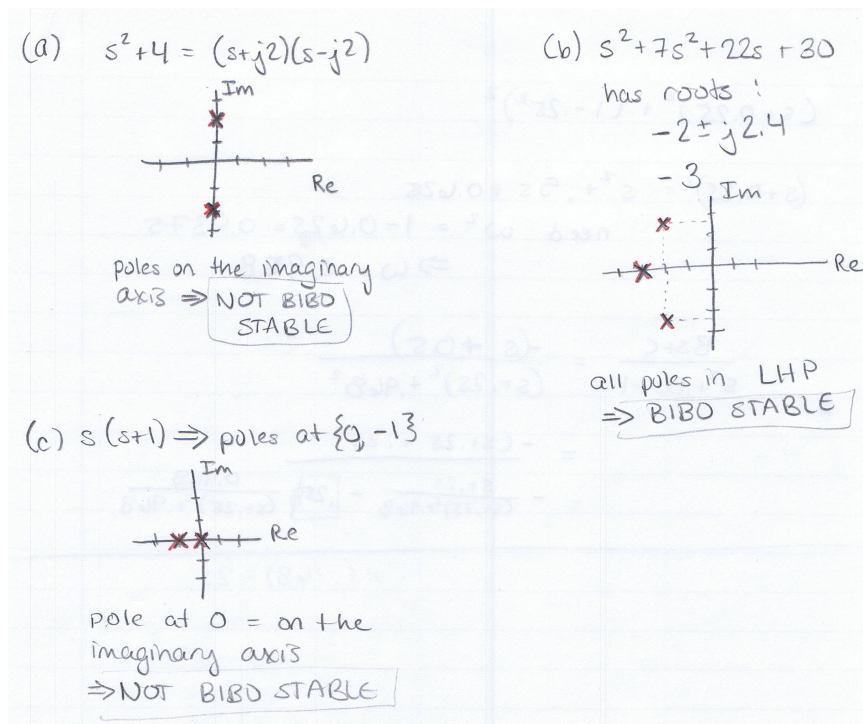 (a) s²+4 = (s+j2)(s-j2)
Im
Re
poles on the imaginary
axis ⇒ NOT BIBO
STABLE
(b) s²+7s²+22s+30
has roots:
-2 ± j2.4
-3
Im
Re
all poles in LHP
⇒ BIBO STABLE
(c) s(s+1) ⇒ poles at {0,-1}
Im
Re
pole at 0 = on the
imaginary axis
⇒ NOT BIBO STABLE